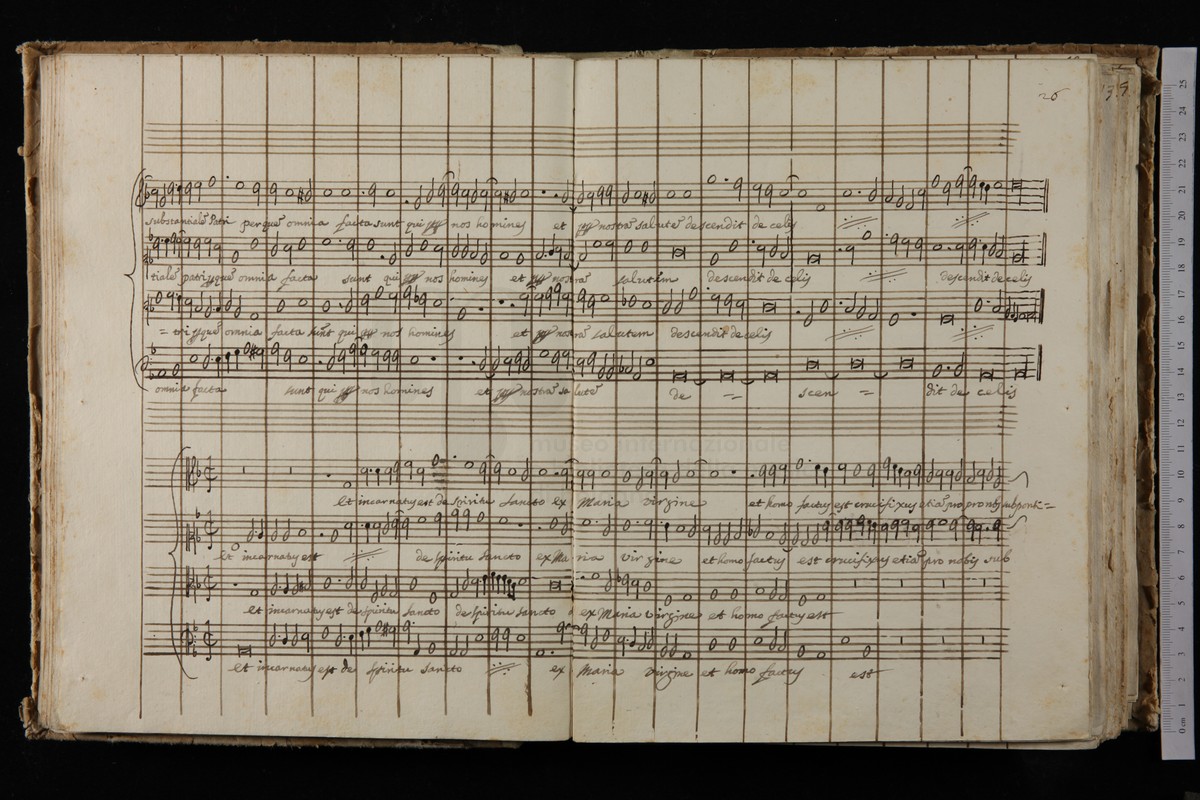 26
substantiale Patri per que omnia facta sunt qui nos homines et nostra salute descendit de celis
tiale patri que omnia facta sunt qui nos homines et nostra salutem descendit de celis descendit de celis
= tri que omnia facta sunt qui nos homines et nostra salutem descendit de celis
omnia facta sunt qui nos homines et nostra salute de = scen = dit de celis
museo internazionale
Et incarnatus est de Spiritu Sancto ex Maria virgine et homo factus est crucifixus etia pro nobis sub pont=
Et incarnatus est de spiritu sancto ex Maria virgine et homo factus est crucifixus etia pro nobis sub
et incarnatus est de spiritu sancto de spiritu sancto ex Maria virgine et homo factus est
et incarnatus est de spiritu sancto ex Maria virgine et homo factus est